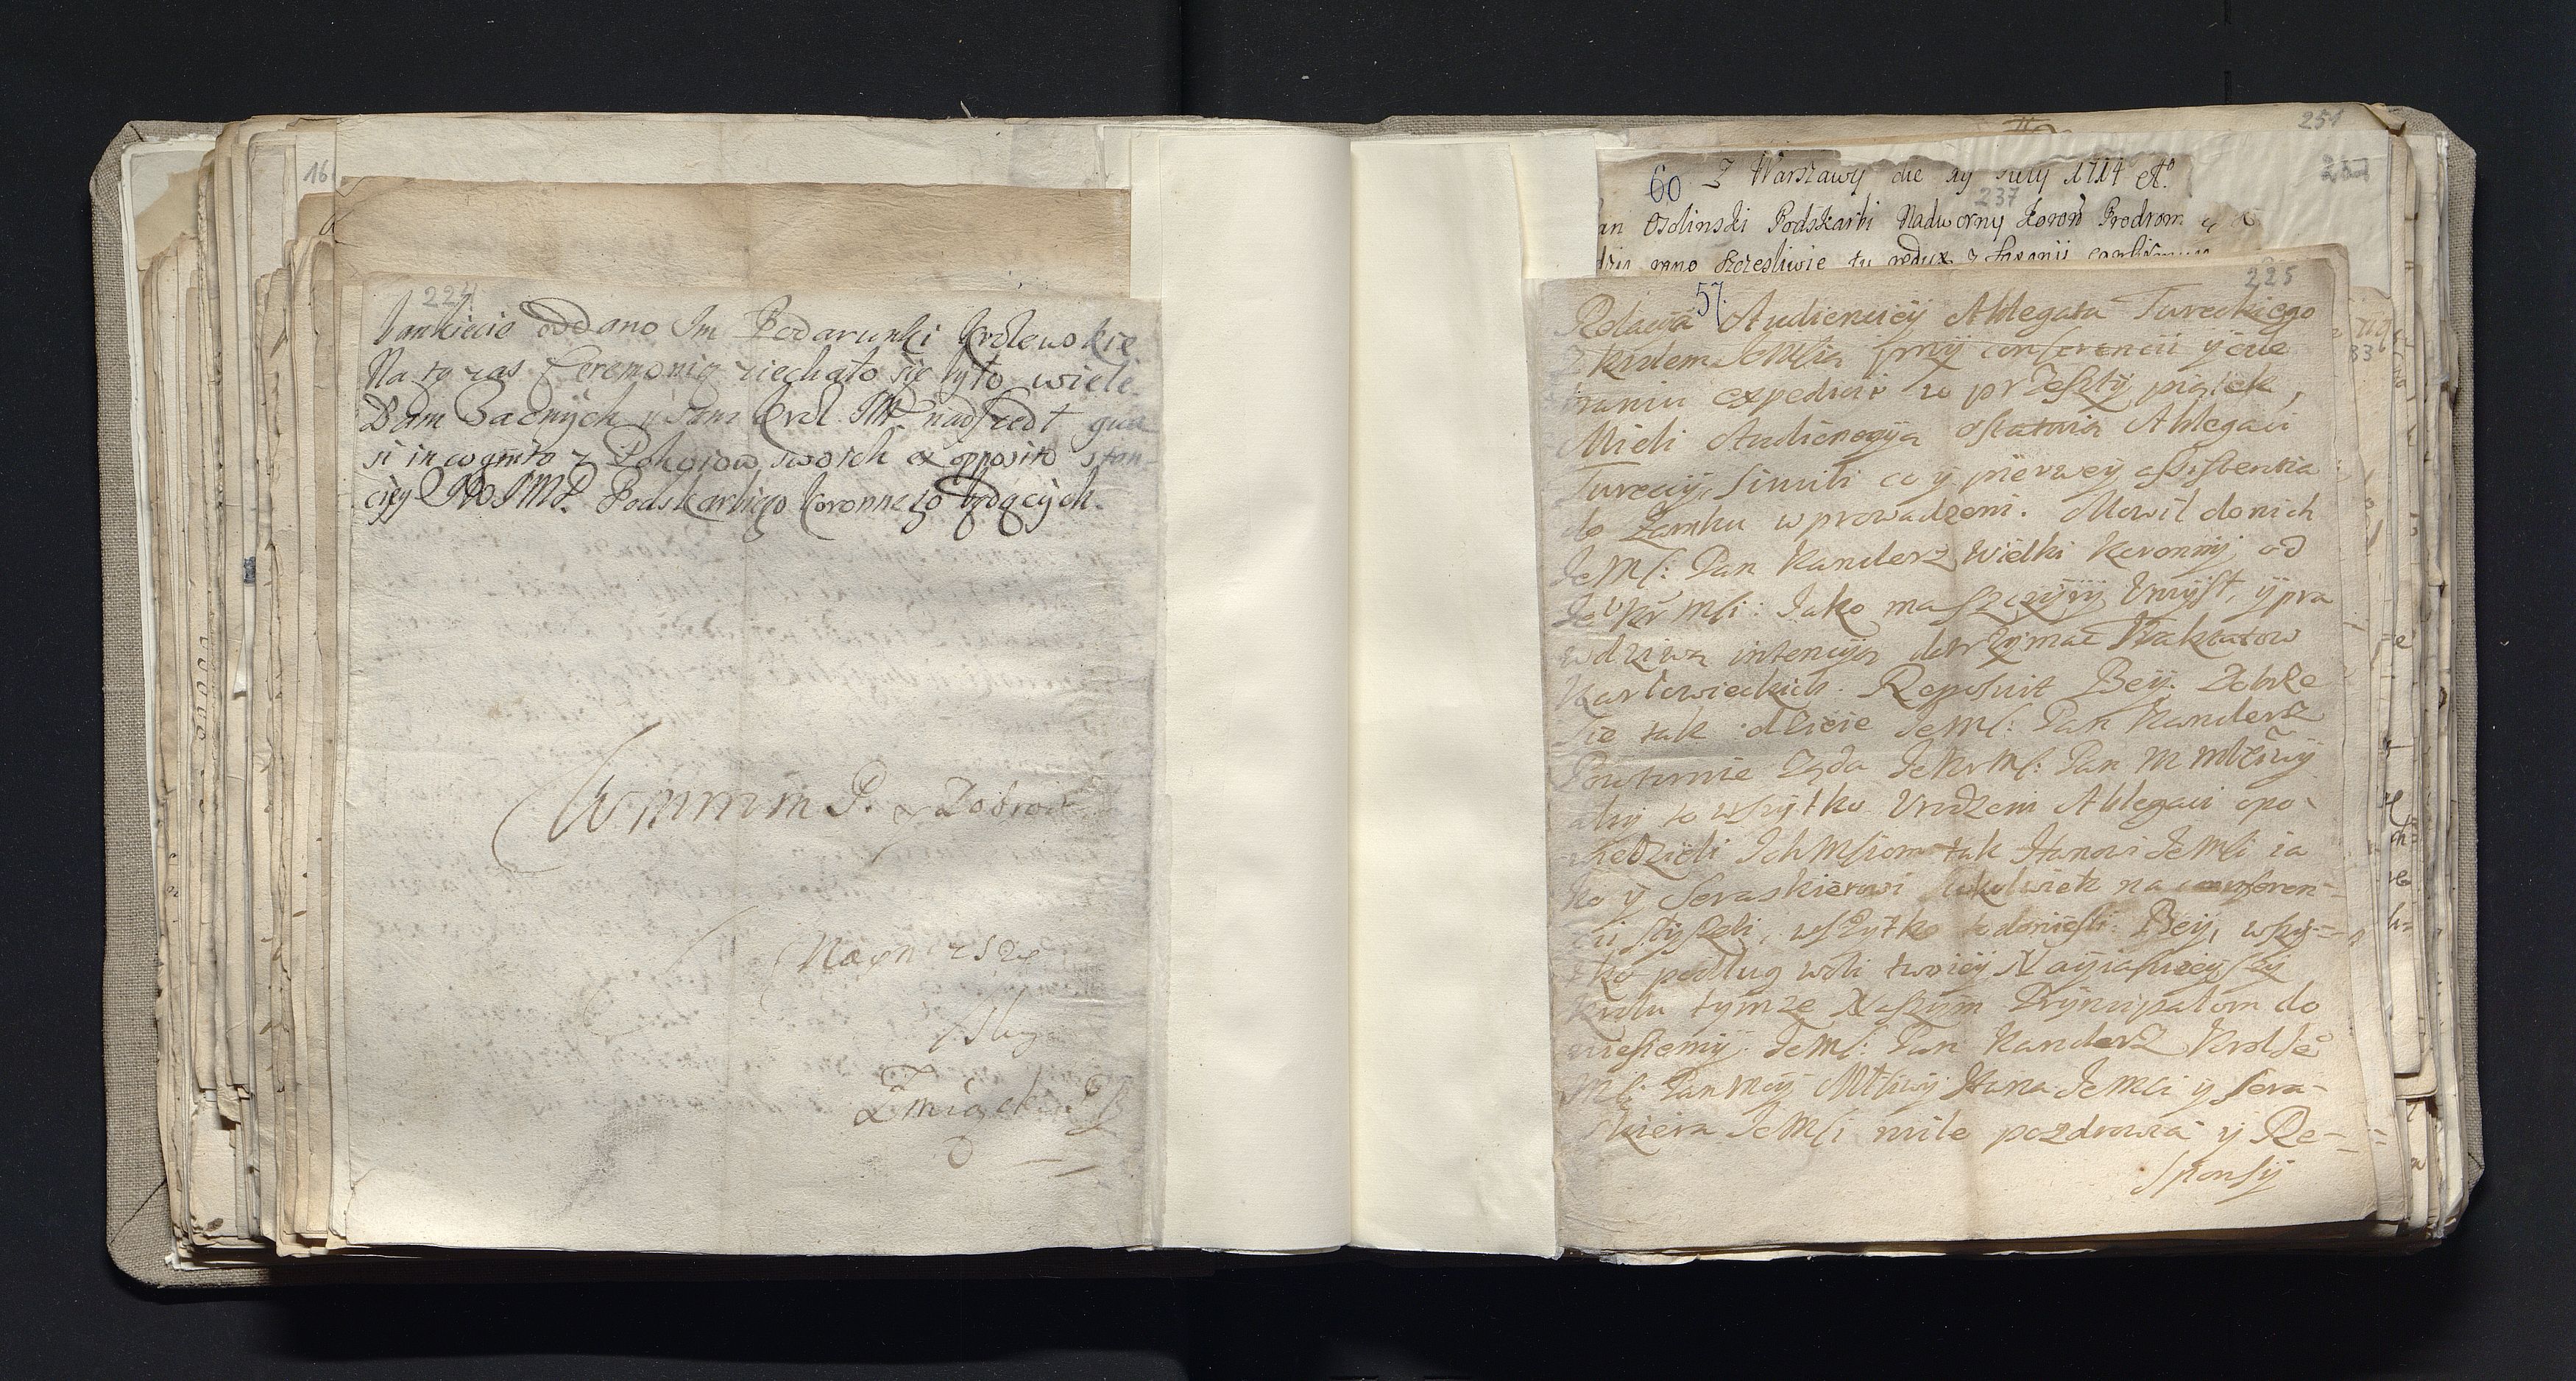 224
bankiecie oddano Im Podarunki Krolewskie
Na ty zas Ceremonią ziechało się było wiele
Dam Zacnych y sam Krol JM nadszedł qua
si incognito z Pokoiow swoich ex opposito stan-
cyey JMP. Podskarbiego koronnego będących.
WMMM P. y Dobrod
Nayniższy
Sługa
60 Z Warszawy die 19 July 1714 Ao.
237
251
an Osolinski Podskarbi Nadworny Koron Prodrom
rano szczesliwie tu redux z Saxonij
57
225
Relacya Audiencyey Ablegata Tureckiego
z krolem JeMścią przy conferencii y cere
expedicii w przeszły piątek,
Mieli Audiencyją ostatnią Ablegaci
Tureccy, simili co y pierwey assistentia
do Zamku wprowadzeni. Mowił do nich
JeMś: Pan Kanclerz Wielki Koronny od
Je Kr Mśi: Jako ma szczyry Umysł, y pra
wdziwą intencyją dotrzymać Traktatow
Karłowieckich. Reposuit Bey. Dobrze
sie tak dzieie JeMś: Pan Kanclerz
Powtornie Ząda JeKrMś: Pan M Młćiwy
aby to wszytko Urodzeni Ablegaci opo-
wiedzieli IchMściom tak Hanowi JeMśi ia
ko y Seraskierowi cokolwiek na conferen-
cii słyszeli, wszytko to donieśli. Bey, wszy=
tko podług woli twoiey Nayiasnieyszy
Krolu tymze Naszym Pryncypałom do
niesiemy. JeMś: Pan Kanclerz Krol Je
Mś: Pan Moy Młściwy Hana JeMśi y Sera-
skiera JeMśi mile pozdrawia y Re-
sponsy